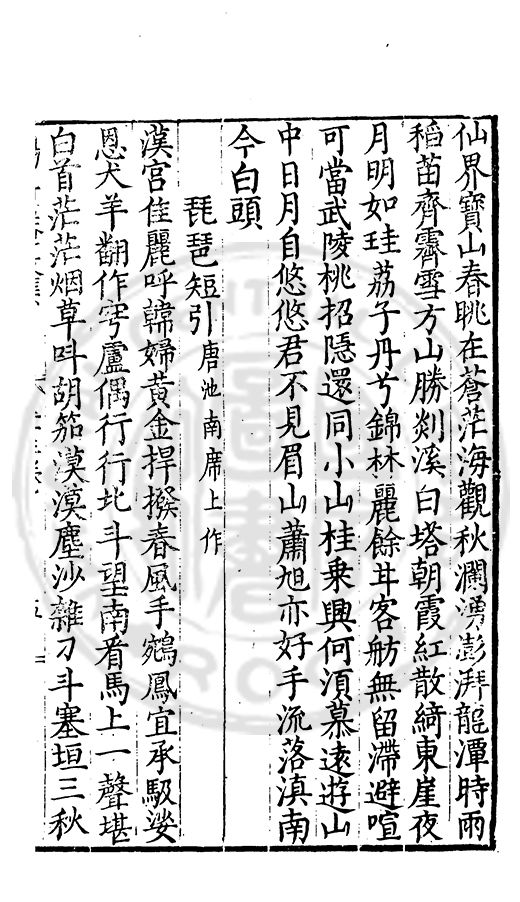 仙界寶山春眺在蒼茫海觀秋瀾湧澎湃龍潭時雨
稻苗齊霽雪方山勝剡溪白塔朝霞紅散綺東崖夜
月明如珪荔子丹兮錦林麗餘甘客舫無留滯避喧
可當武陵桃招隱還同小山桂乗興何湏慕遠遊山
中日月自悠悠君不見眉山蕭旭亦好手流落滇南
今白頭
琵琶短引唐池南席上作
漢宮佳麗呼韓婦黃金捍撥春風手鵷鳳宜承馺娑
恩犬羊翻作穹廬偶行行北斗望南看馬上一聲堪
白首茫茫烟草呌胡笳漠漠塵沙雜刀斗塞垣三秋